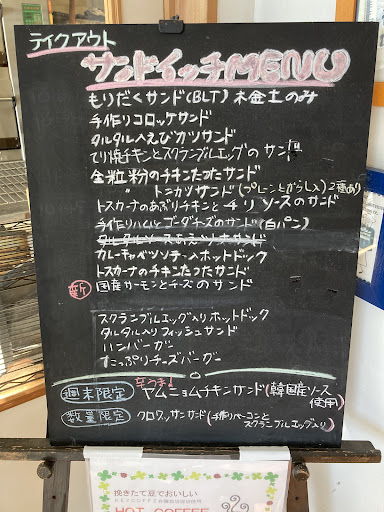 テイクアウト
サンドイッチMENU
もりだくサンド(BLT) 木金土のみ
手作りコロッケサンド
タルタルヘえびカツサンド
てり焼チキンとスクランブルエッグのサンド
全粒粉のチキンカツサンド
〃 トンカツサンド(プレーンとからし入)2種あり
トスカーナのあぶりチキンとチリソースのサンド
手作りハムとゴーダチーズのサンド(白パン)
カレーキャベツソテー入ホットドック
トスカーナのチキンカツサンド
新 国産サーモンとチーズのサンド
スクランブルエッグ入りホットドック
タルタル入りフィッシュサンド
ハンバーガー
たっぷりチーズバーガー
週末限定 辛うま! ヤムニョムチキンサンド(韓国産ソース使用)
数量限定 クロワッサンサンド(手作りベーコンとスクランブルエッグ入り)
挽きたて豆でおいしい
HOT COFFEE